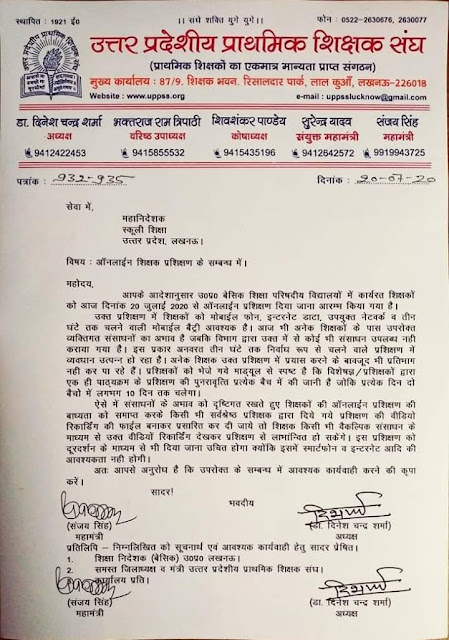 स्थापित : 1921 ई०
।। संघे शक्ति युगे युगे।।
फोन : 0522-2630676, 2630077
उत्तर प्रदेशीय प्राथमिक शिक्षक संघ
(प्राथमिक शिक्षकों का एकमात्र मान्यता प्राप्त संगठन)
मुख्य कार्यालय : 87/9, शिक्षक भवन, रिसालदार पार्क, लाल कुआँ, लखनऊ-226018
Website : www.uppss.org
e-mail : uppsslucknow@gmail.com
डा. दिनेश चन्द्र शर्मा
अध्यक्ष
9412422453
भक्तराज राम त्रिपाठी
वरिष्ठ उपाध्यक्ष
9415855532
शिवशंकर पाण्डेय
कोषाध्यक्ष
9415435196
सुरेन्द्र यादव
संयुक्त महामंत्री
9412642572
संजय सिंह
महामंत्री
9919943725
पत्रांक : 932-935
दिनांक : 20-07-20
सेवा में,
महानिदेशक
स्कूली शिक्षा
उत्तर प्रदेश, लखनऊ।
विषय : ऑनलाईन शिक्षक प्रशिक्षण के सम्बन्ध में।
महोदय,
आपके आदेशानुसार उ०प्र० बेसिक शिक्षा परिषदीय विद्यालयों में कार्यरत शिक्षकों
को आज दिनांक 20 जुलाई 2020 से ऑनलाईन प्रशिक्षण दिया जाना आरम्भ किया गया है।
उक्त प्रशिक्षण में शिक्षकों को मोबाईल फोन, इन्टरनेट डाटा, उपयुक्त नेटवर्क व तीन
घंटे तक चलने वाली मोबाईल बैट्री आवश्यक है। आज भी अनेक शिक्षकों के पास उपरोक्त
व्यक्तिगत संसाधनों का अभाव है जबकि विभाग द्वारा उक्त में से कोई भी संसाधन उपलब्ध नही
कराया गया है। इस प्रकार अनवरत तीन घंटे तक निर्वाध रूप से चलने वाले प्रशिक्षण में
व्यवधान उत्पन्न हो रहा है। अनेक शिक्षक उक्त प्रशिक्षण में प्रयास करने के बावजूद भी प्रतिभाग
नही कर पा रहे हैं। प्रशिक्षकों को भेजे गये माड्यूल से स्पष्ट है कि विशेषज्ञ/प्रशिक्षकों द्वारा
एक ही पाठ्यक्रम के प्रशिक्षण की पुनरावृति प्रत्येक बैच में की जानी है जोकि प्रत्येक दिन दो
बैचो में लगभग 10 दिन तक चलेगा।
ऐसे में संसाधनों के अभाव को दृष्टिगत रखते हुए शिक्षकों की ऑनलाईन प्रशिक्षण की
बाध्यता को समाप्त करके किसी भी सर्वश्रेष्ठ प्रशिक्षक द्वारा दिये गये प्रशिक्षण की वीडियो
रिकार्डिंग की फाईल बनाकर प्रसारित कर दी जाये तो शिक्षक किसी भी वैकल्पिक संसाधन के
माध्यम से उक्त वीडियो रिकार्डिंग देखकर प्रशिक्षण से लाभान्वित हो सकेंगे। इस प्रशिक्षण को
दूरदर्शन के माध्यम से भी दिया जाना उचित होगा क्योंकि इसमें स्मार्टफोन व इन्टरनेट आदि की
आवश्यकता नही होगी।
अतः आपसे अनुरोध है कि उपरोक्त के सम्बन्ध में आवश्यक कार्यवाही करने की कृपा
करें।
सादर!
भवदीय
(संजय सिंह)
महामंत्री
(डा. दिनेश चन्द्र शर्मा)
अध्यक्ष
प्रतिलिपि – निम्नलिखित को सूचनार्थ एवं आवश्यक कार्यवाही हेतु सादर प्रेषित।
1. शिक्षा निदेशक (बेसिक) उ०प्र० लखनऊ।
2. समस्त जिलाध्यक्ष व मंत्री उत्तर प्रदेशीय प्राथमिक शिक्षक संघ।
3. कार्यालय प्रति।
(संजय सिंह)
महामंत्री
(डा. दिनेश चन्द्र शर्मा)
अध्यक्ष